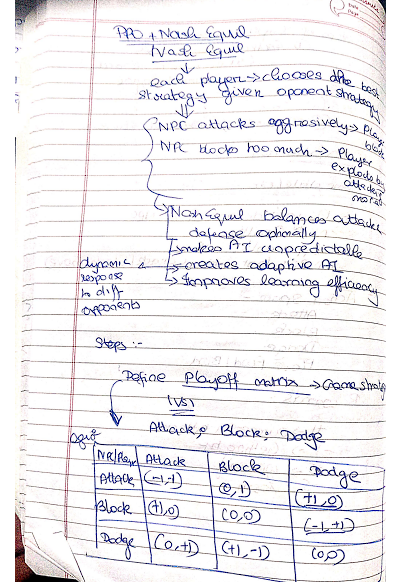 PPO + Nash Equil
Nash Equil
each player → chooses the best
strategy given oponent strategy
NPC attacks aggressively → Player
block
NPC blocks too much → Player
exploits by
attacking
more
→ Nash Equil balances attack
defense optimally
→ makes AI unpredictable
→ creates adaptive AI
→ Improves learning efficiency
dynamic
response
to diff
opponents
Steps :-
Define Payoff matrix → Game strat
(VS)
Attack; Block; Dodge
NPC/Player Attack Block Dodge
Attack (-1,-1) (0,1) (+1,0)
Block (+1,0) (0,0) (-1,+1)
Dodge (0,+1) (+1,-1) (0,0)